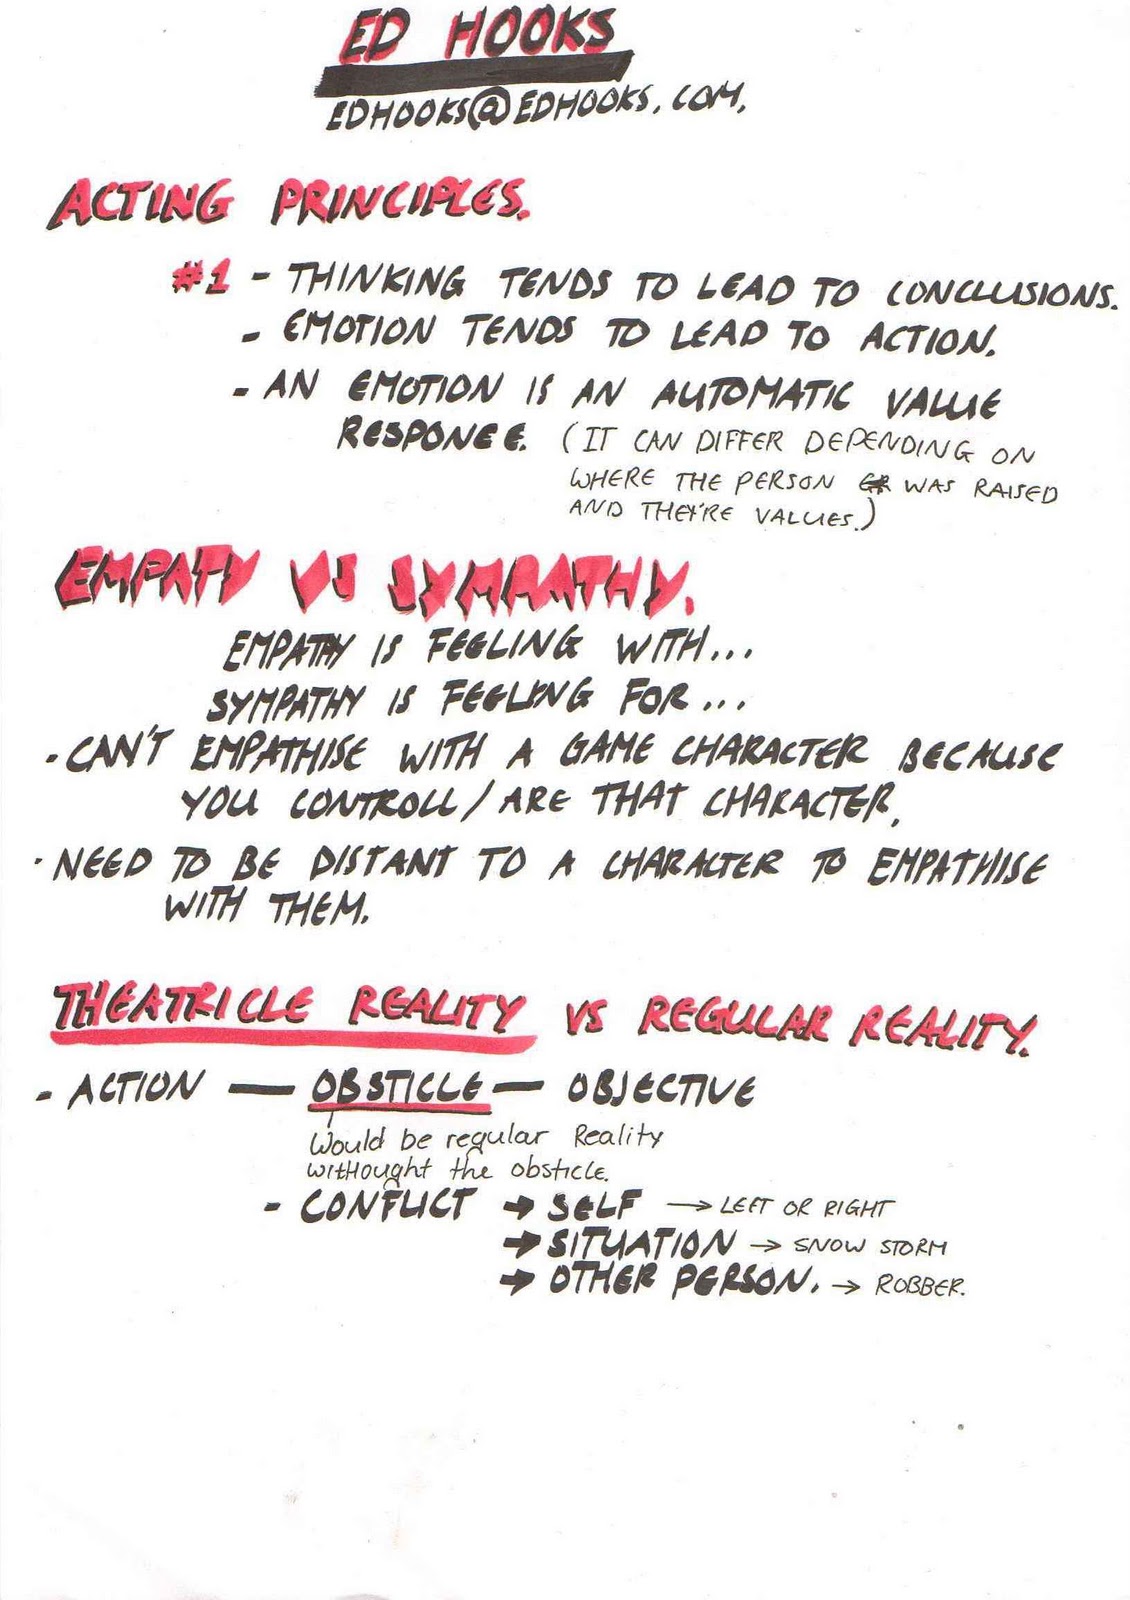 ED HOOKS
EDHOOKS@EDHOOKS.COM.
ACTING PRINCIPLES.
#1 - THINKING TENDS TO LEAD TO CONCLUSIONS.
- EMOTION TENDS TO LEAD TO ACTION.
- AN EMOTION IS AN AUTOMATIC VALUE
RESPONCE. (IT CAN DIFFER DEPENDING ON
WHERE THE PERSON WAS RAISED
AND THEY'RE VALUES.)
EMPATY VS SYMPATHY.
EMPATHY IS FEELING WITH...
SYMPATHY IS FEELING FOR...
- CAN'T EMPATHISE WITH A GAME CHARACTER BECAUSE
YOU CONTROLL / ARE THAT CHARACTER.
- NEED TO BE DISTANT TO A CHARACTER TO EMPATHISE
WITH THEM.
THEATRICLE REALITY VS REGULAR REALITY.
- ACTION — OBSTICLE — OBJECTIVE
Would be regular Reality
withought the obsticle.
- CONFLICT → SELF → LEFT OR RIGHT
→ SITUATION → SNOW STORM
→ OTHER PERSON. → ROBBER.